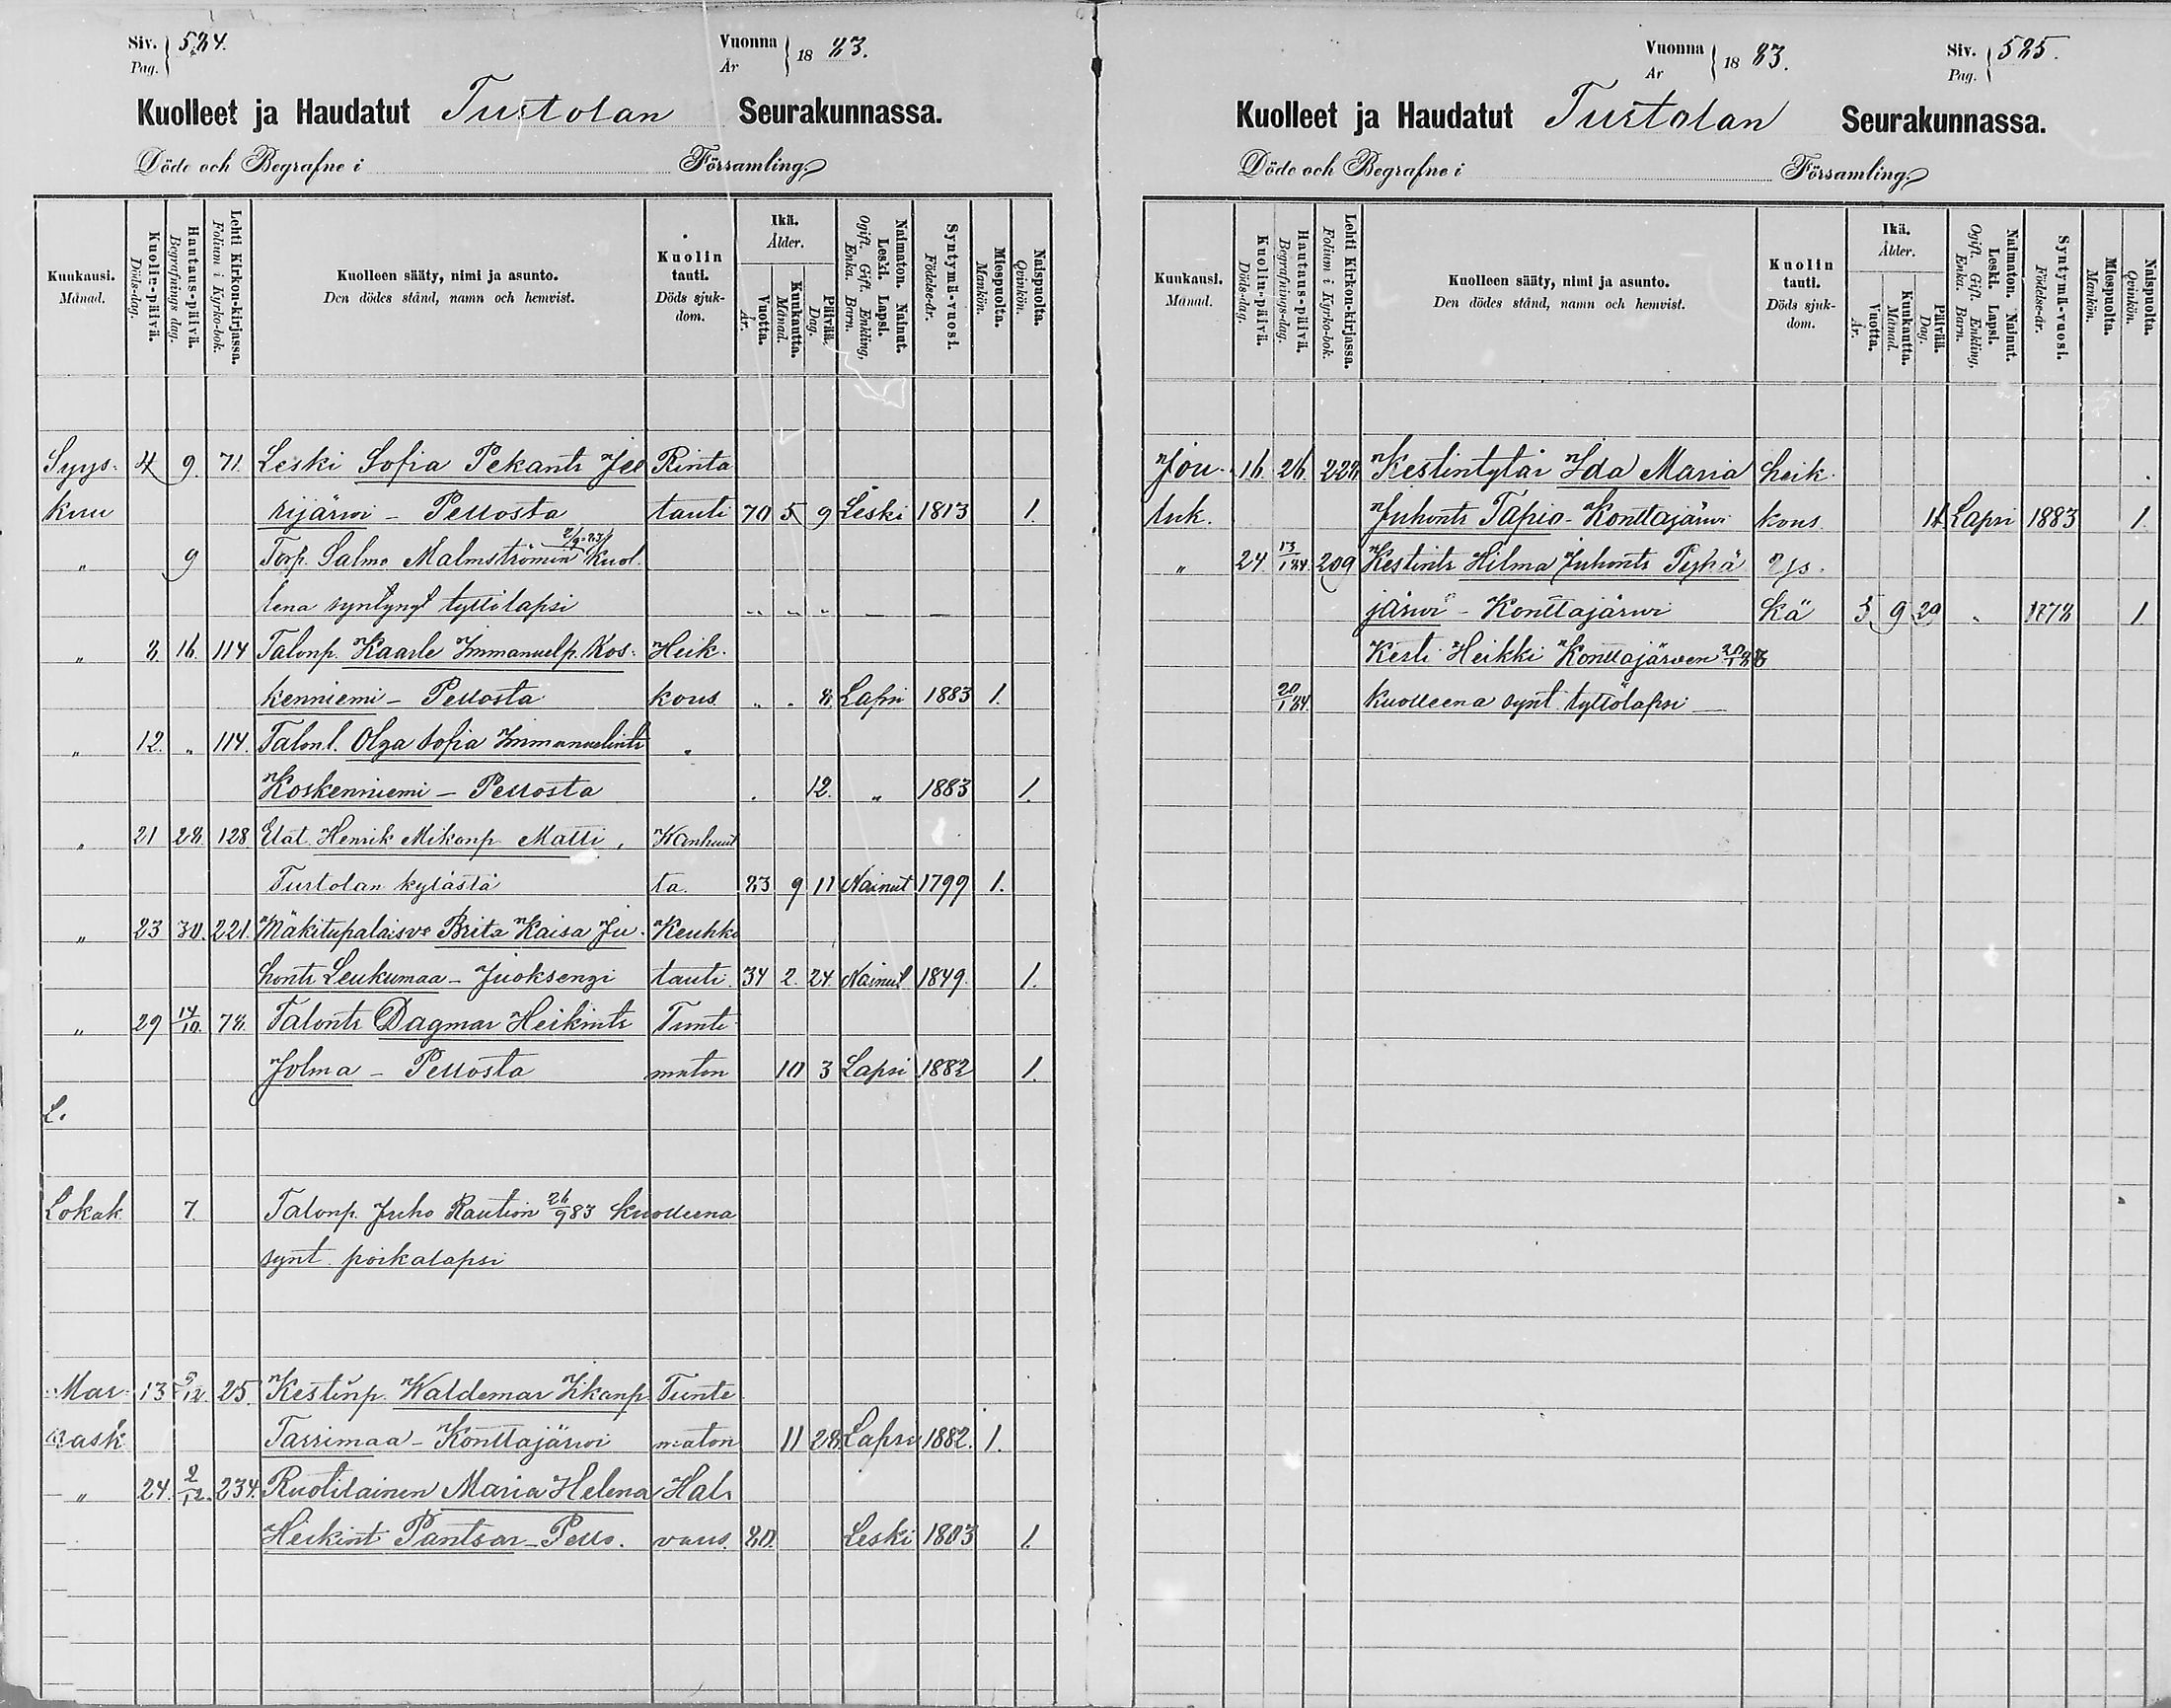 Siv. 584. Vuonna 1883.
Pag. År
Kuolleet ja Haudatut Turtolan Seurakunnassa.
Döde och Begrafne i Församling.
Kuukausi. Månad.
Kuolin-päivä. Döds-dag.
Hautaus-päivä. Begrafnings dag.
Lehti Kirkon-kirjassa. Folium i Kyrko-bok.
Kuolleen sääty, nimi ja asunto.
Den dödes stånd, namn och hemvist.
Kuolin tauti. Döds sjuk-dom.
Ikä. Ålder.
Vuotta. År.
Kuukautta. Månad.
Päivää. Dag.
Naimaton. Nainut. Leski. Lapsi.
Ogift. Gift. Enkling, Enka. Barn.
Syntymä-vuosi. Födelse-år.
Miespuolta. Mankön.
Naispuolta. Qvinkön.
Syys- 4 9. 71. Leski Sofia Pekantr Jee Rinta
kuu rijärwi - Pellosta tauti 70 5 9 Leski 1813 1.
" 9 Torp. Salmo Malmströmin 2/9-83 kuol.
lena syntynyt tyttölapsi " " " — —
" 8. 16. 114 Talonp. Kaarle Immanuelp. Kos- Heik-
kenniemi - Pellosta kous " " 8 Lapsi 1883 1.
" 12. " 114. Talonl. Olga Sofia Immanuelintr "
Koskenniemi - Pellosta . 12. " 1883 1.
" 21 28. 128 Elat. Henrik Mikonp. Matti, Wanhuut
Turtolan kylästä ta. 83 9 11 Nainut 1799 1.
" 23 30. 221. Mäkitupalaisv: Brita Kaisa Ju- Keuhko
hontr Leukumaa - Juoksengi tauti. 34 2. 24. Nainut 1849. 1.
" 29 14/10. 78. Talontr Dagmar Heikintr Tunte-
Jolma - Pellosta maton 10 3 Lapsi 1882 1.
L.
Lokak. 7. Talonp. Juho Raution 26/9 83 kuolleena
synt. poikalapsi
Mar- 13 2/12. 25. Kestinp. Waldemar Iikanp. Tunte
rask. Tarrimaa - Konttajärwi maton 11 28. Lapsi 1882. 1.
" 24. 2/12. 234. Ruotilainen Maria Helena Hal-
Heikint Pantsar - Pello. vaus. 80. Leski 1803 1.
Vuonna 1883. Siv. 585.
År Pag.
Kuolleet ja Haudatut Turtolan Seurakunnassa.
Döde och Begrafne i Församling.
Kuukausi. Månad.
Kuolin-päivä. Döds-dag.
Hautaus-päivä. Begrafnings-dag.
Lehti Kirkon-kirjassa. Folium i Kyrko-bok.
Kuolleen sääty, nimi ja asunto.
Den dödes stånd, namn och hemvist.
Kuolin tauti. Döds sjuk-dom.
Ikä. Ålder.
Vuotta. År.
Kuukautta. Månad.
Päivää. Dag.
Naimaton. Nainut. Leski. Lapsi.
Ogift. Gift. Enkling, Enka. Barn.
Syntymä-vuosi. Födelse-år.
Miespuolta. Mankön.
Naispuolta. Qvinkön.
Jou- 16. 26. 228. Kestintytär Ida Maria heik-
luk. Juhontr Tapio - Konttajärwi kous Lapsi 1883 1.
" 24. 13/1 84. 209 Kestintr Hilma Juhontr Pyhä Rys-
järwi - Konttajärwi kä 5 9 29 " 1878 1.
Kesti Heikki Konttajärwen
20/1 84. kuolleena synt. tyttölapsi —